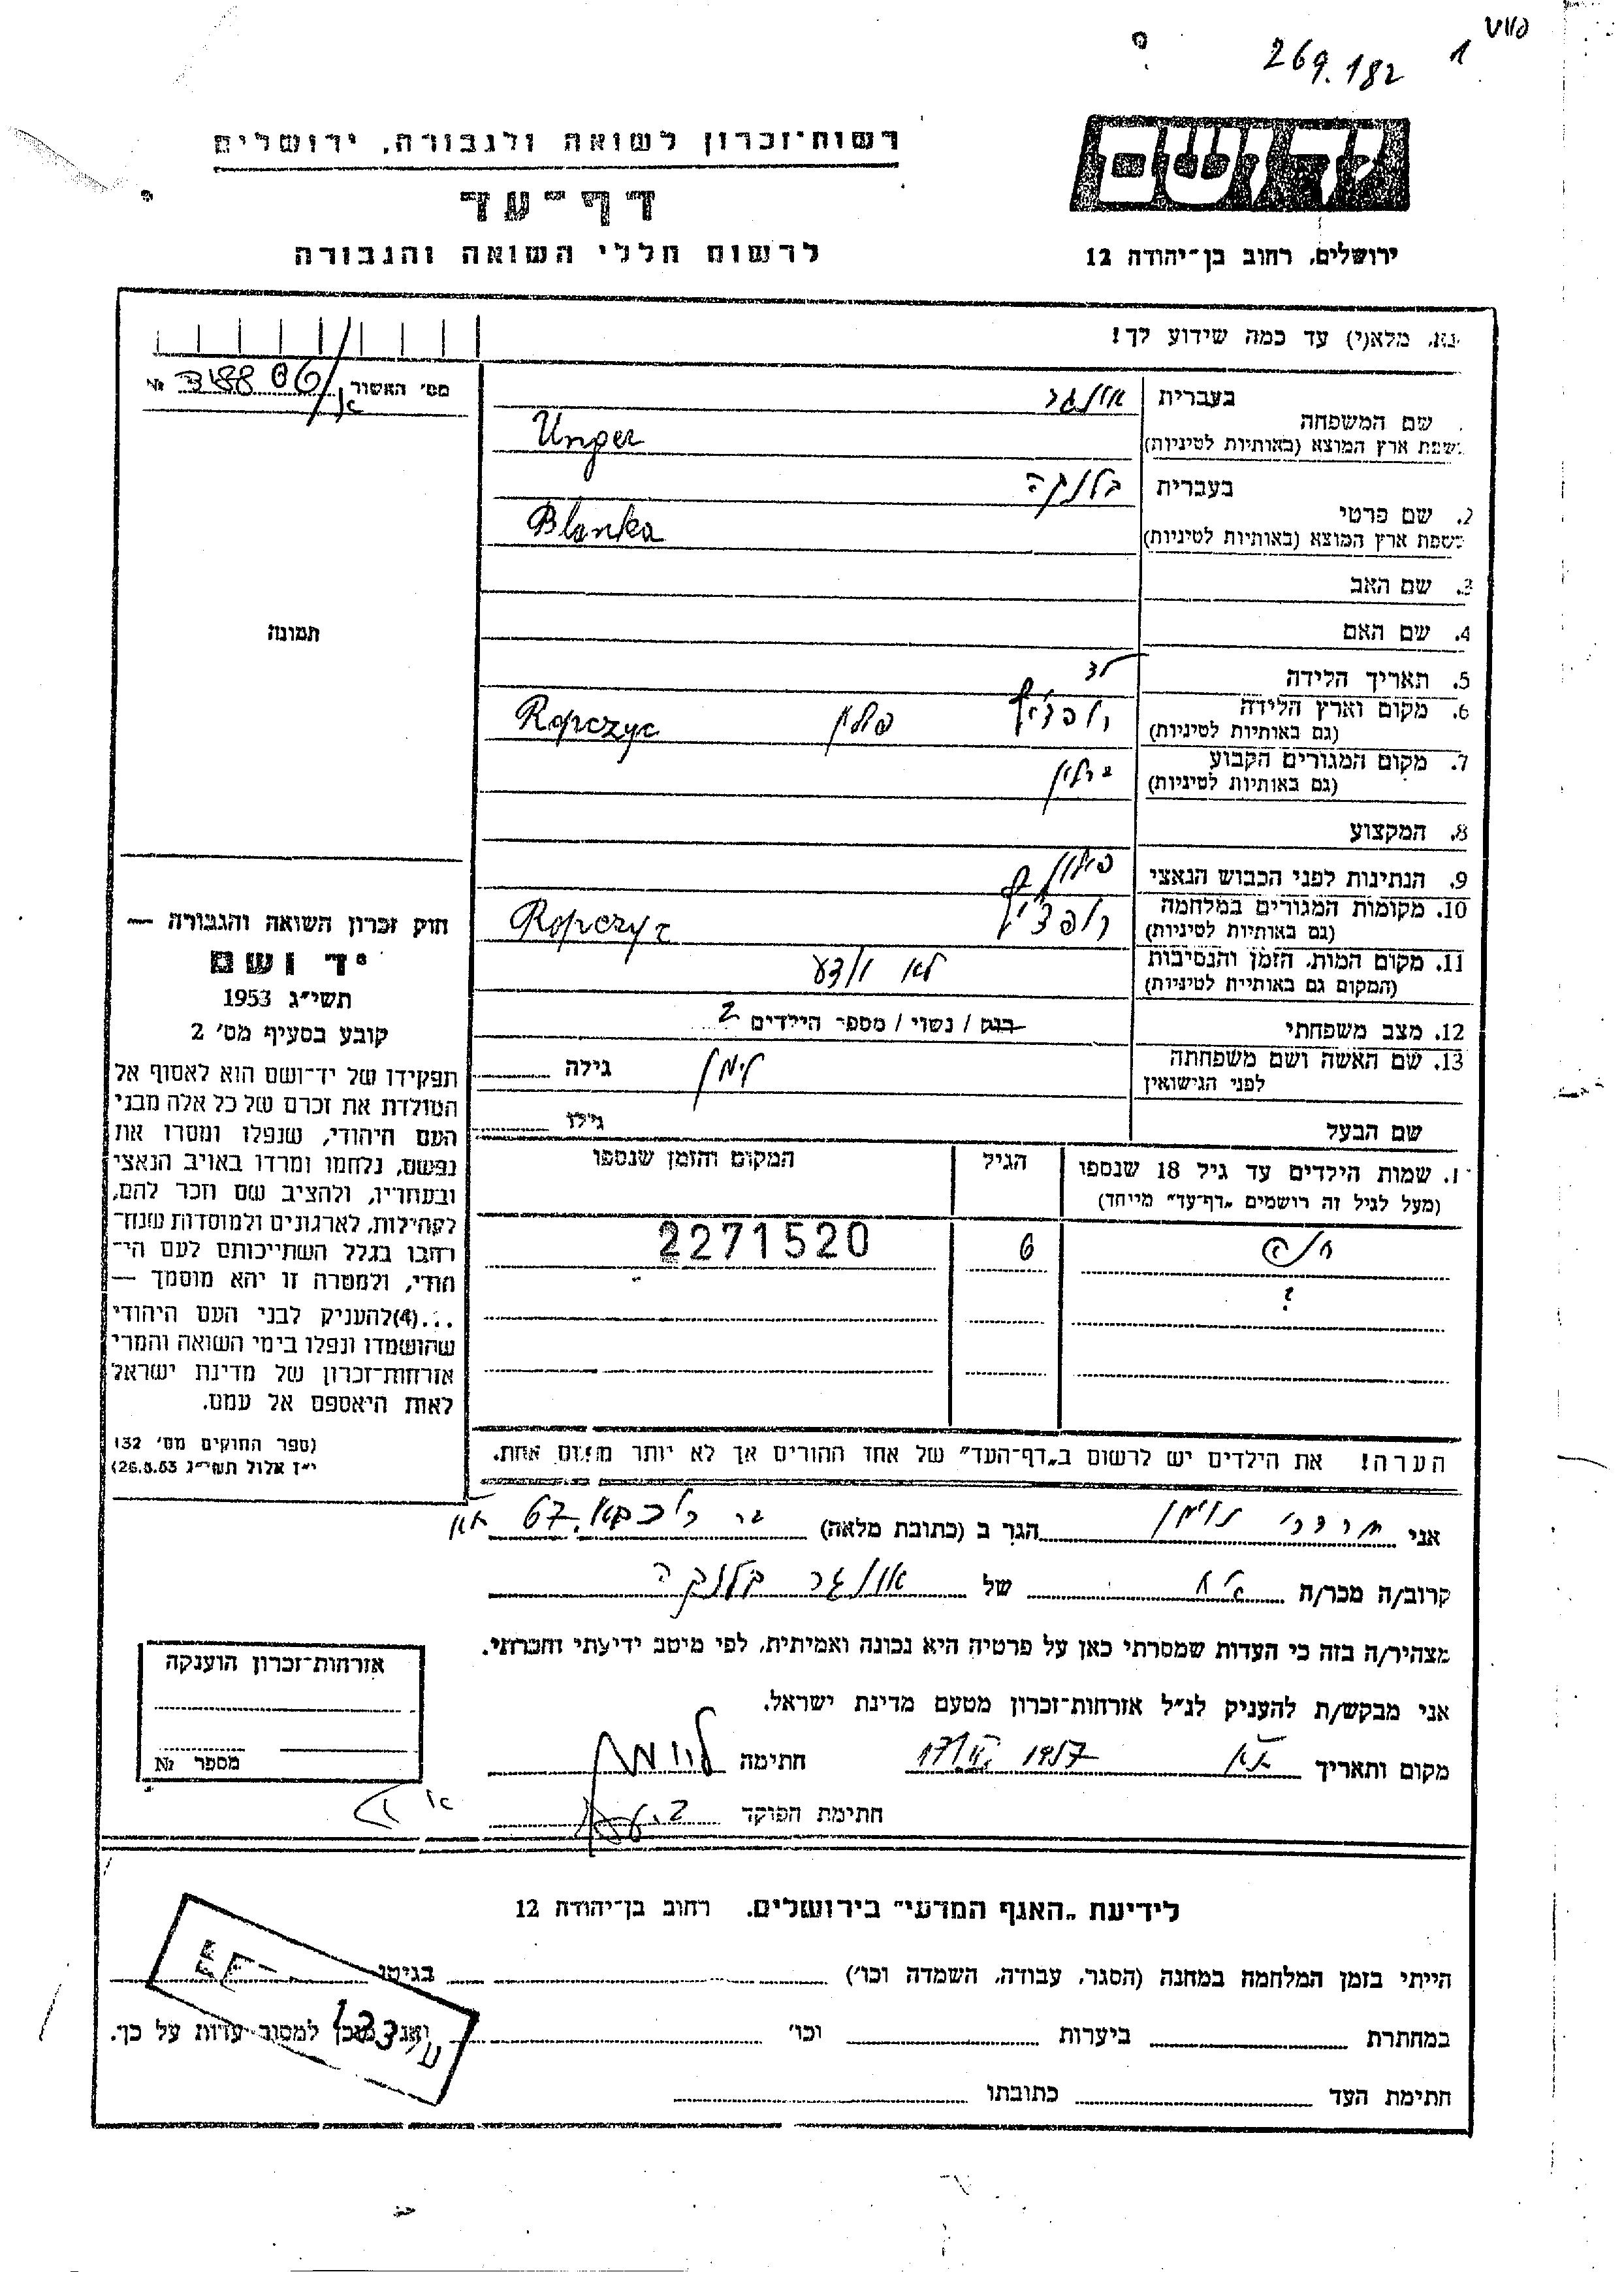 269.182
1
רשות־זכרון לשואה ולגבורה, ירושלים
דף־עד
לרשום חללי השואה והגבורה
ירושלים, רחוב בן־יהודה 12
נא, מלא(י) עד כמה שידוע לך!
מס' האשור
№
בעברית
אונגר
שם המשפחה
בשפת ארץ המוצא (באותיות לטיניות)
Unger
בעברית
בלנקה
2. שם פרטי
בשפת ארץ המוצא (באותיות לטיניות)
Blanka
3. שם האב
4. שם האם
5. תאריך הלידה
6. מקום וארץ הלידה
(גם באותיות לטיניות)
רופצ'יץ פולין Ropczyc
7. מקום המגורים הקבוע
(גם באותיות לטיניות)
ברלין
8. המקצוע
9. הנתינות לפני הכבוש הנאצי
פולין
10. מקומות המגורים במלחמה
(גם באותיות לטיניות)
רופצ'יץ Ropczyc
11. מקום המות, הזמן והנסיבות
(המקום גם באותיות לטיניות)
לא ידע
12. מצב משפחתי
רוק / נשוי / מספר הילדים 2
13. שם האשה ושם משפחתה
לפני הנישואין
גילה
שם הבעל
גילו
תמונה
חוק זכרון השואה והגבורה —
יד ושם
תשי״ג 1953
קובע בסעיף מס' 2
תפקידו של יד־ושם הוא לאסוף אל
המולדת את זכרם של כל אלה מבני
העם היהודי, שנפלו ומסרו את
נפשם, נלחמו ומרדו באויב הנאצי
ובעוזריו, ולהציב שם וזכר להם,
לקהילות, לארגונים ולמוסדות שנח־
רחבו בגלל השתייכותם לעם הי־
הודי, ולמטרה זו יהא מוסמך —
...(4)להעניק לבני העם היהודי
שהושמדו ונפלו בימי השואה והמרי
אזרחות־זכרון של מדינת ישראל
לאות היאספם אל עמם.
(ספר החוקים מס' 132
י״ז אלול תשי״ג 26.8.53)
שמות הילדים עד גיל 18 שנספו
(מעל לגיל זה רושמים „דף־עד״ מייחד)
הגיל
המקום והזמן שנספו
6
2271520
?
הערה! את הילדים יש לרשום ב„דף־העד״ של אחד ההורים אך לא יותר מפעם אחת.
אני מרדכי נוימן הגר ב (כתובת מלאה) 67
קרוב/ה מכר/ה אח של אונגר בלנקה
מצהיר/ה בזה כי העדות שמסרתי כאן על פרטיה היא נכונה ואמיתית, לפי מיטב ידיעתי והכרתי.
אני מבקש/ת להעניק לנ״ל אזרחות־זכרון מטעם מדינת ישראל.
מקום ותאריך ת״א 1957 חתימה
חתימת הפוקד
אזרחות־זכרון הוענקה
מספר №
לידיעת „האגף המדעי״ בירושלים, רחוב בן־יהודה 12
הייתי בזמן המלחמה במחנה (הסגר, עבודה, השמדה וכו') בגיטו
במחתרת ביערות וכו' ואני מוכן למסור עדות על כך.
חתימת העד כתובתו